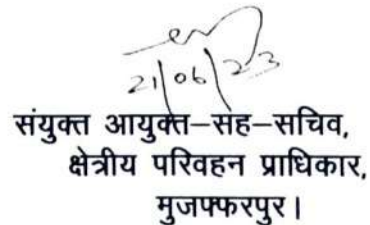 21/06/23
संयुक्त आयुक्त-सह-सचिव,
क्षेत्रीय परिवहन प्राधिकार,
मुजफ्फरपुर।